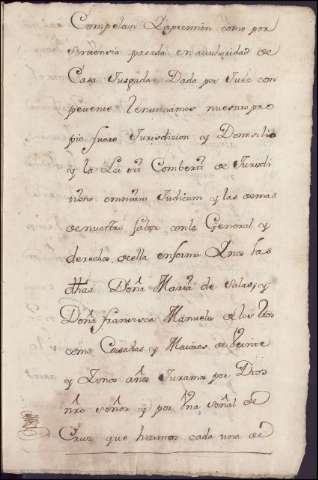 Compelan Y apremien como por
Sentencia pasada en autoridad de
Cosa Juzgada Dada por Juez com
petente Renunciamos nuestro pro
pio fuero Jurisdicion y Domisilio
y la Ley Comberit de Jurisdi
omnium Judicum y las demas
de nuestro fabor con la General y
derechos de ella en forma Y nos las
dhas Doña Maria de Salas y
Doña francisca Manuela de los
como Casadas y Maiores de Veinte
y Sinco años Juramos por Dios
nro Señor y por Una Señal de
Cruz que hasemos cada una de